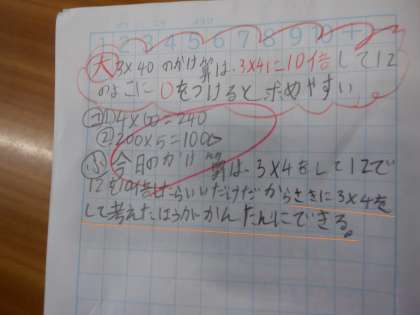 1 2 3 4 5 6 7 8 9 10 +
大 3×40のかけ算は、3×4に10倍して12
のよこに0をつけると求めやすい
①4×60=240
②200×5=1000
ふ 今日のかけ算は、3×4をして12で
12を10倍けらいいだけだからさきに3×4を
して考えたほうがかんたんにできる。